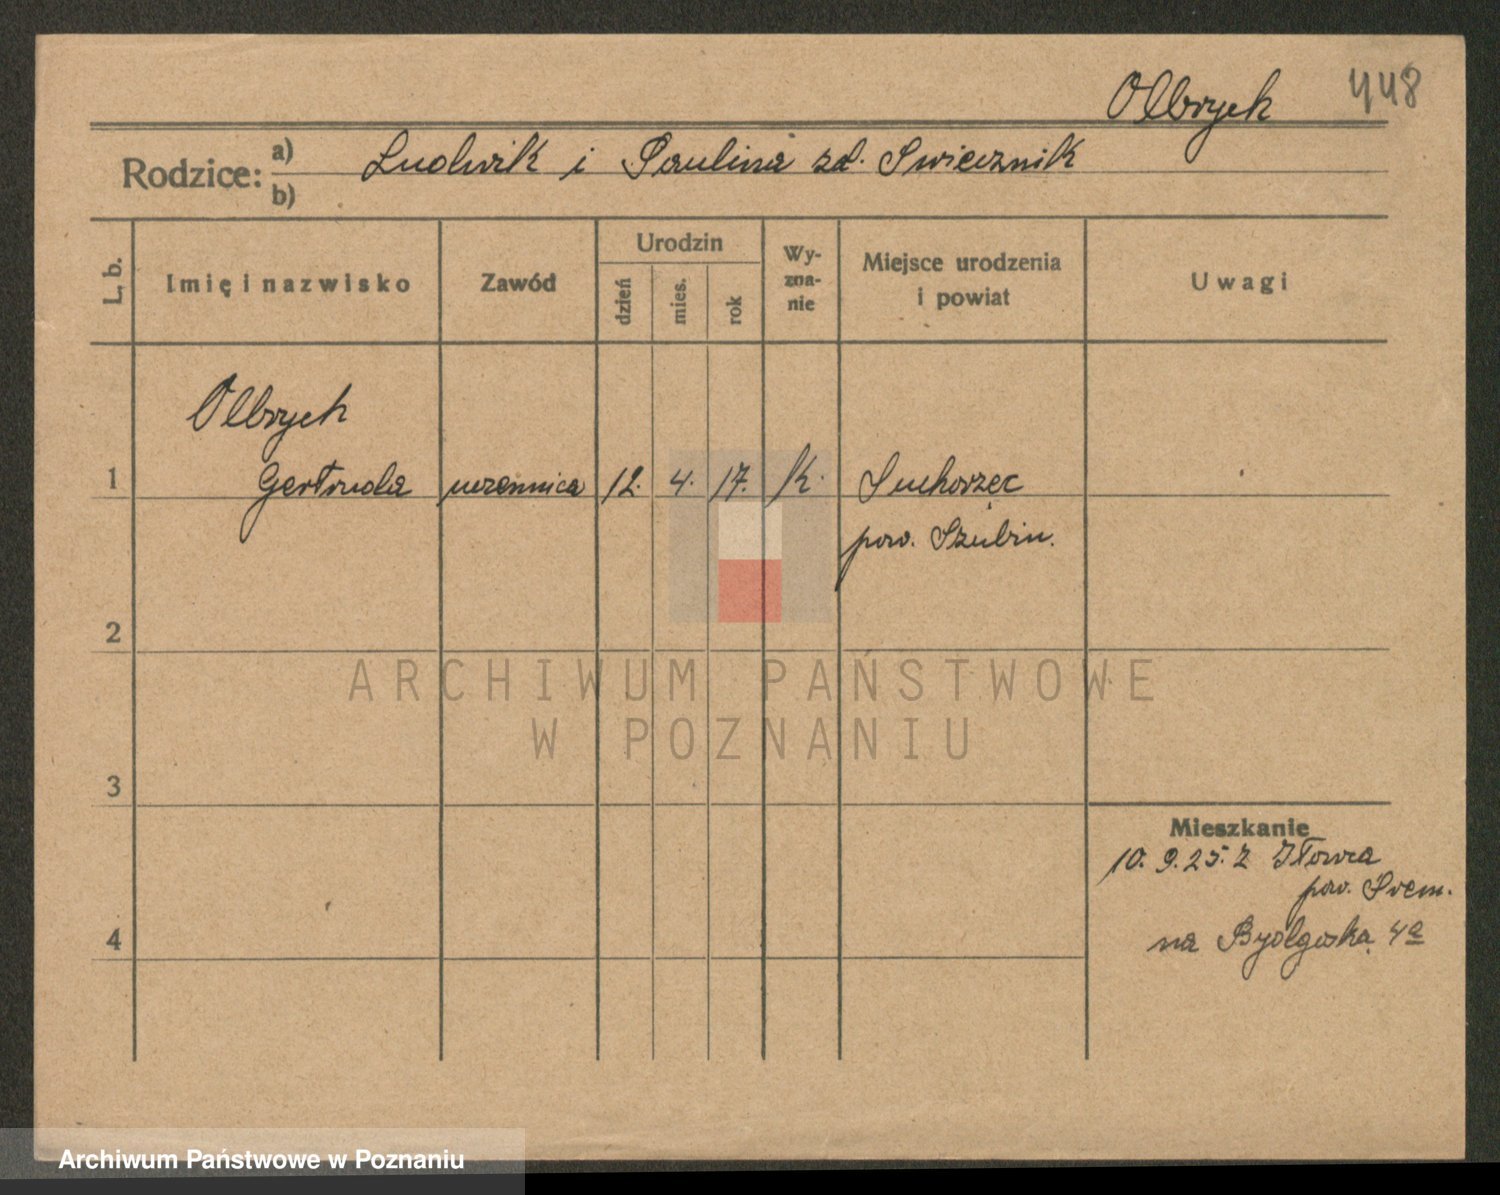 Olbrych 448
Rodzice: a) Ludwik i Paulina zd. Swiecznik
b)
L. b. Imię i nazwisko Zawód Urodzin dzień mies. rok Wy-zna-nie Miejsce urodzenia i powiat Uwagi
Olbrych
1 Gertruda uczennica 12. 4. 17. k. Suchorzec
pow. Szubin.
2
ARCHIWUM PAŃSTWOWE
W POZNANIU
3
Mieszkanie
10. 9. 25. z Iłowca
pow. Srem.
4 na Bydgoska 4a
Archiwum Państwowe w Poznaniu